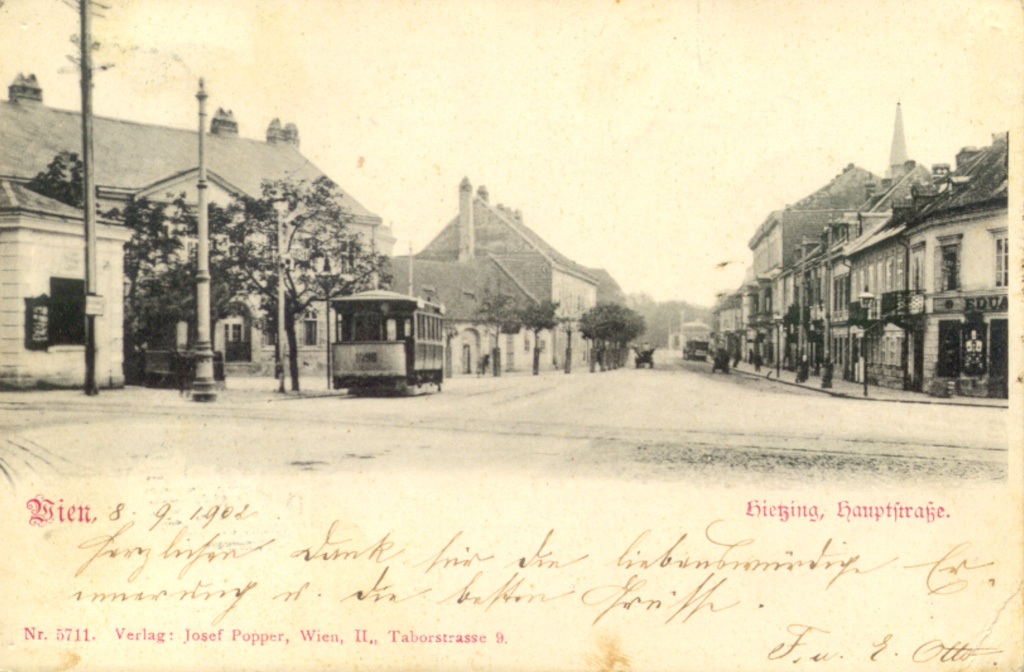 EDUA
Wien, 8. 9. 1902
Hietzing, Hauptstraße.
Herzlichen Dank für die liebenswürdige Er-
innerung u. die besten Grüsse.
Nr. 5711. Verlag: Josef Popper, Wien, II., Taborstrasse 9.
F. u. E. Otto.